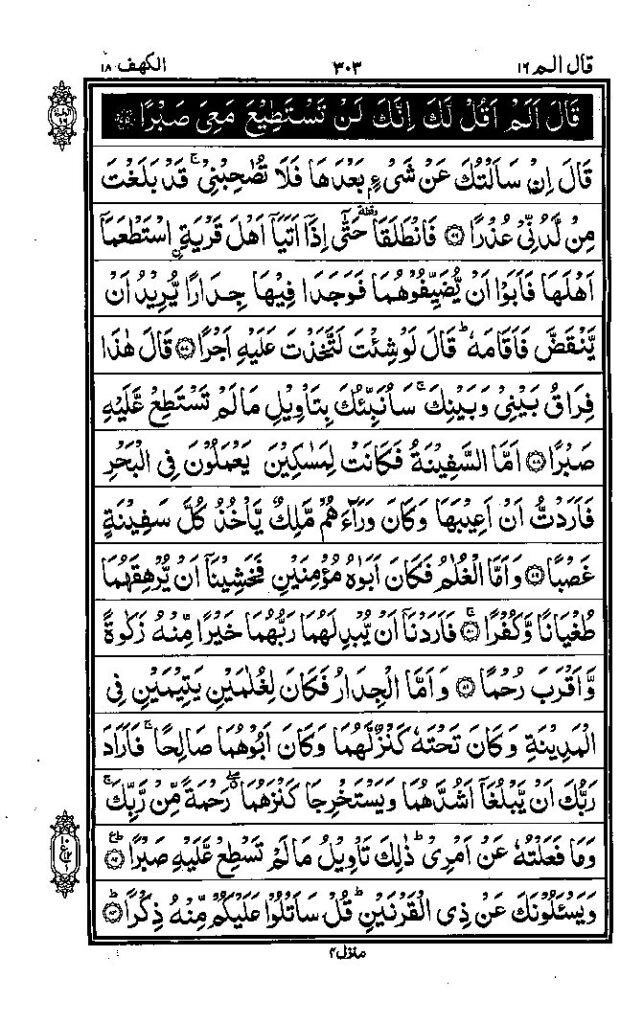 قال الم ١٦
٣٠٣
الكهف ١٨
قَالَ اَلَمْ اَقُلْ لَّكَ اِنَّكَ لَنْ تَسْتَطِيْعَ مَعِىَ صَبْرًا ﴿٧٥﴾
قَالَ اِنْ سَاَلْتُكَ عَنْ شَىْءٍۭ بَعْدَهَا فَلَا تُصٰحِبْنِىْ ۚ قَدْ بَلَغْتَ
مِنْ لَّدُنِّىْ عُذْرًا ﴿٧٦﴾ فَانْطَلَقَا ٝ حَتّٰٓى اِذَآ اَتَيَآ اَهْلَ قَرْيَةِ ۨ اسْتَطْعَمَآ
اَهْلَهَا فَاَبَوْا اَنْ يُّضَيِّفُوْهُمَا فَوَجَدَا فِيْهَا جِدَارًا يُّرِيْدُ اَنْ
يَّنْقَضَّ فَاَقَامَهٗ ؕ قَالَ لَوْ شِئْتَ لَتَّخَذْتَ عَلَيْهِ اَجْرًا ﴿٧٧﴾ قَالَ هٰذَا
فِرَاقُ بَيْنِىْ وَبَيْنِكَ ۚ سَاُنَبِّئُكَ بِتَاْوِيْلِ مَا لَمْ تَسْتَطِعْ عَّلَيْهِ
صَبْرًا ﴿٧٨﴾ اَمَّا السَّفِيْنَةُ فَكَانَتْ لِمَسٰكِيْنَ يَعْمَلُوْنَ فِى الْبَحْرِ
فَاَرَدْتُّ اَنْ اَعِيْبَهَا وَكَانَ وَرَآءَهُمْ مَّلِكٌ يَّاْخُذُ كُلَّ سَفِيْنَةٍ
غَصْبًا ﴿٧٩﴾ وَاَمَّا الْغُلٰمُ فَكَانَ اَبَوٰهُ مُؤْمِنَيْنِ فَخَشِيْنَآ اَنْ يُّرْهِقَهُمَا
طُغْيَانًا وَّكُفْرًا ﴿٨٠﴾ ۚ فَاَرَدْنَآ اَنْ يُّبْدِلَهُمَا رَبُّهُمَا خَيْرًا مِّنْهُ زَكٰوةً
وَّاَقْرَبَ رُحْمًا ﴿٨١﴾ وَاَمَّا الْجِدَارُ فَكَانَ لِغُلٰمَيْنِ يَتِيْمَيْنِ فِى
الْمَدِيْنَةِ وَكَانَ تَحْتَهٗ كَنْزٌ لَّهُمَا وَكَانَ اَبُوْهُمَا صَالِحًا ۚ فَاَرَادَ
رَبُّكَ اَنْ يَّبْلُغَآ اَشُدَّهُمَا وَيَسْتَخْرِجَا كَنْزَهُمَا ۖ رَحْمَةً مِّنْ رَّبِّكَ ۚ
وَمَا فَعَلْتُهٗ عَنْ اَمْرِىْ ؕ ذٰلِكَ تَاْوِيْلُ مَا لَمْ تَسْطِعْ عَّلَيْهِ صَبْرًا ﴿٨٢﴾
وَيَسْـَٔلُوْنَكَ عَنْ ذِى الْقَرْنَيْنِ ؕ قُلْ سَاَتْلُوْا عَلَيْكُمْ مِّنْهُ ذِكْرًا ﴿٨٣﴾ ؕ
منزل ٤